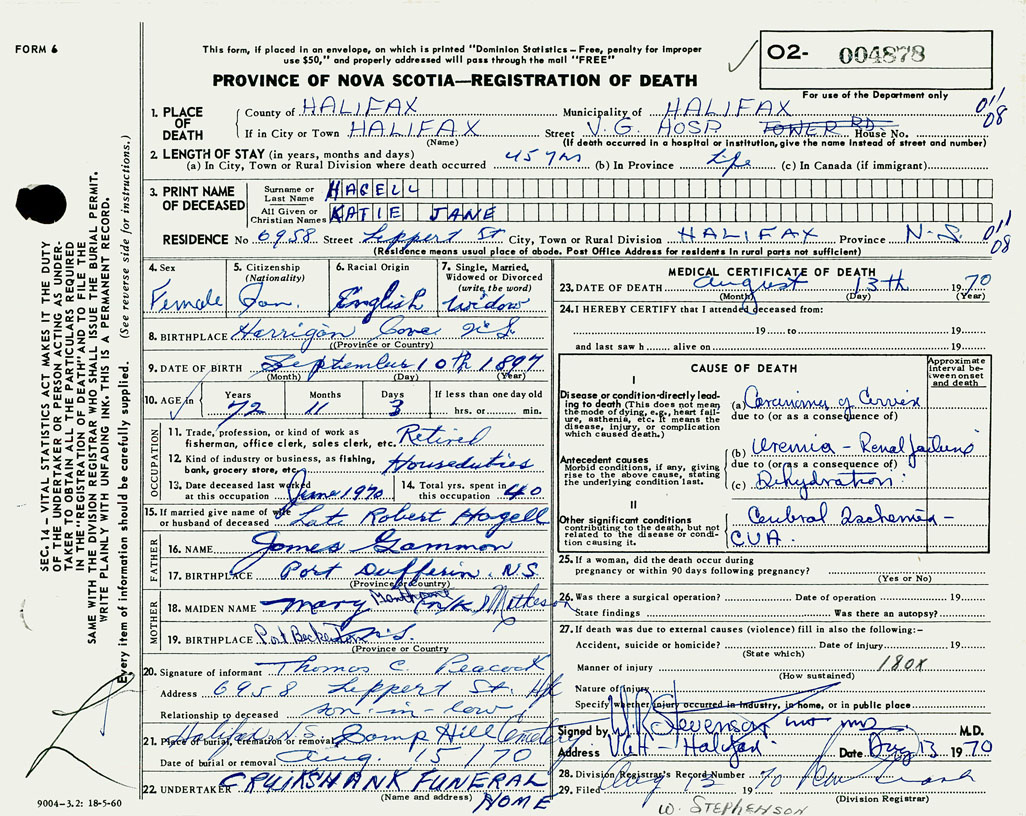 FORM 6
This form, if placed in an envelope, on which is printed "Dominion Statistics – Free, penalty for improper
use $50," and properly addressed will pass through the mail "FREE"
PROVINCE OF NOVA SCOTIA—REGISTRATION OF DEATH
O2- 004878
For use of the Department only
011
08
1. PLACE OF DEATH
County of HALIFAX Municipality of HALIFAX
If in City or Town HALIFAX Street V.G. HOSP. TOWER RD. House No.
(Name) (If death occurred in a hospital or institution, give the name instead of street and number)
2. LENGTH OF STAY (in years, months and days)
(a) In City, Town or Rural Division where death occurred 45 yrs (b) In Province Life (c) In Canada (if immigrant)
3. PRINT NAME OF DECEASED
Surname or Last Name HAGELL
All Given or Christian Names KATIE JANE
RESIDENCE No 6958 Street Leppert St City, Town or Rural Division HALIFAX Province N.S.
011
08
(Residence means usual place of abode. Post Office Address for residents in rural parts not sufficient)
4. Sex Female
5. Citizenship (Nationality) Can.
6. Racial Origin English
7. Single, Married, Widowed or Divorced (write the word) Widow
8. BIRTHPLACE Harrigan Cove N.S.
(Province or Country)
9. DATE OF BIRTH September 10th 1897
(Month) (Day) (Year)
10. AGE in Years 72 Months 11 Days 3 If less than one day old hrs. or min.
OCCUPATION
11. Trade, profession, or kind of work as fisherman, office clerk, sales clerk, etc. Retired
12. Kind of industry or business, as fishing, bank, grocery store, etc. Houseduties
13. Date deceased last worked at this occupation June 1970
14. Total yrs. spent in this occupation 40
15. If married give name of wife or husband of deceased Late Robert Hagell
FATHER
16. NAME James Gammon
17. BIRTHPLACE Port Dufferin, N.S.
(Province or Country)
MOTHER
18. MAIDEN NAME Mary N/K Matheson
19. BIRTHPLACE Port Beckerton N.S.
(Province or Country)
20. Signature of informant Thomas C. Peacock
Address 6958 Leppert St. Hfx
Relationship to deceased son-in-law
21. Place of burial, cremation or removal Halifax N.S. Camp Hill Cemetery
Date of burial or removal Aug. 15/70
22. UNDERTAKER CRUIKSHANK FUNERAL HOME
(Name and address)
MEDICAL CERTIFICATE OF DEATH
23. DATE OF DEATH August 13th 1970
(Month) (Day) (Year)
24. I HEREBY CERTIFY that I attended deceased from:
19 to 19
and last saw h alive on 19
CAUSE OF DEATH
Approximate interval between onset and death
I
Disease or condition directly leading to death (This does not mean the mode of dying, e.g., heart failure, asthenia, etc. It means the disease, injury, or complication which caused death.)
(a) Carcinoma of Cervix
due to (or as a consequence of)
Antecedent causes
Morbid conditions, if any, giving rise to the above cause, stating the underlying condition last.
(b) Uremia – Renal failure
due to (or as a consequence of)
(c) Dehydration.
II
Other significant conditions contributing to the death, but not related to the disease or condition causing it.
Cerebral Ischemia –
CVA.
25. If a woman, did the death occur during
pregnancy or within 90 days following pregnancy?
(Yes or No)
26. Was there a surgical operation? Date of operation 19
State findings Was there an autopsy?
27. If death was due to external causes (violence) fill in also the following:–
Accident, suicide or homicide? Date of injury 19
(State which)
Manner of injury 180X
(How sustained)
Nature of injury
Specify whether injury occurred in industry, in home, or in public place
Signed by W.R. Stevenson M.D.
Address VGH – Halifax. Date Aug 13 1970
28. Division Registrar's Record Number
29. Filed Aug 13 1970
(Division Registrar)
W. STEPHENSON
SEC. 14 – VITAL STATISTICS ACT MAKES IT THE DUTY
OF THE UNDERTAKER OR PERSON ACTING AS UNDER-
TAKER TO OBTAIN ALL THE PARTICULARS REQUIRED
IN THE "REGISTRATION OF DEATH" AND TO FILE THE
SAME WITH THE DIVISION REGISTRAR WHO SHALL ISSUE THE BURIAL PERMIT.
WRITE PLAINLY WITH UNFADING INK. THIS IS A PERMANENT RECORD.
Every item of information should be carefully supplied. (See reverse side for instructions.)
9004-3.2: 18-5-60